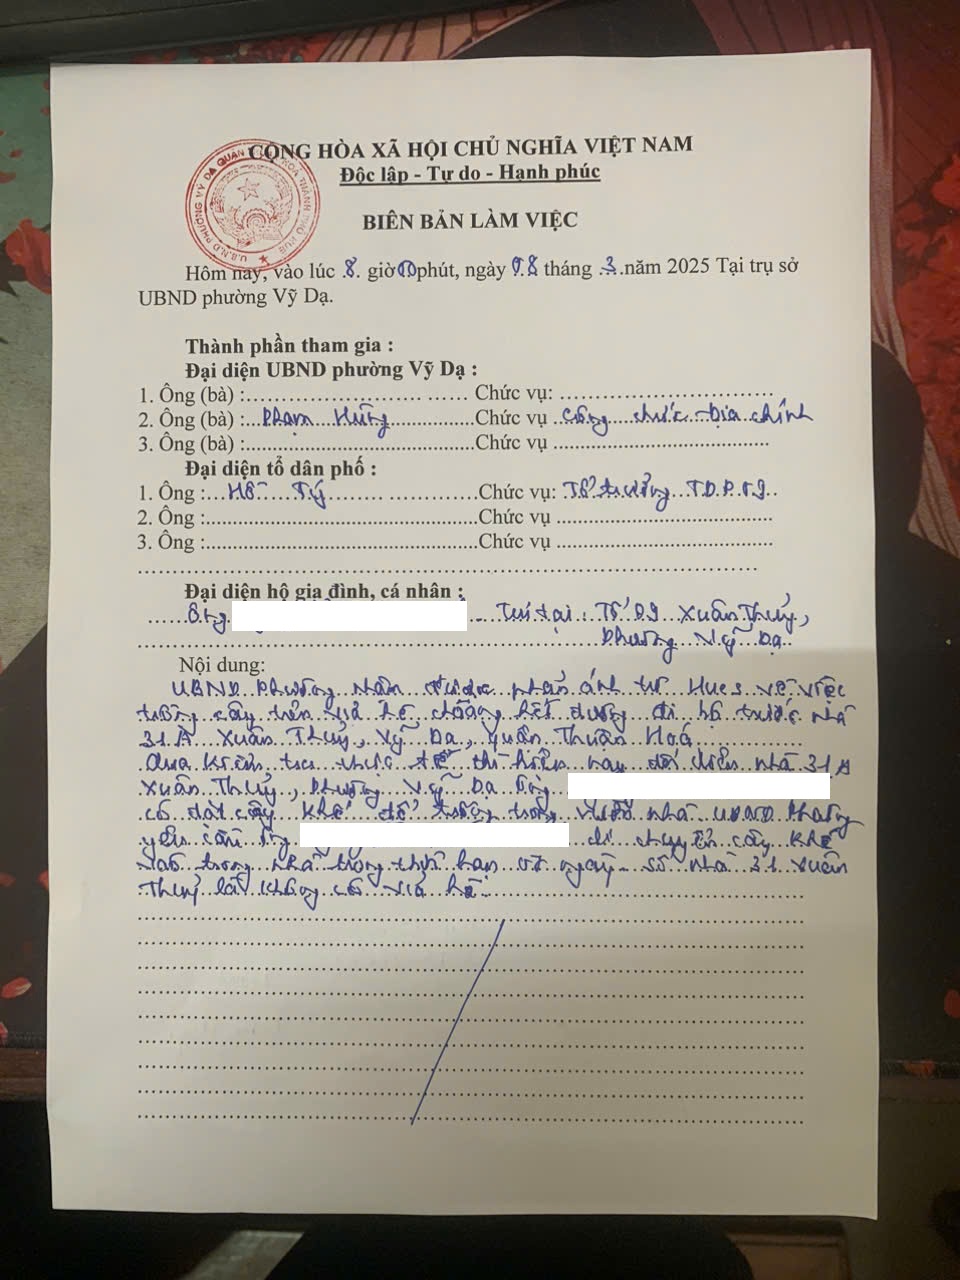 CỘNG HÒA XÃ HỘI CHỦ NGHĨA VIỆT NAM
Độc lập - Tự do - Hạnh phúc
BIÊN BẢN LÀM VIỆC
Hôm nay, vào lúc 8. giờ 00 phút, ngày 08 tháng .3.năm 2025 Tại trụ sở
UBND phường Vỹ Dạ.
Thành phần tham gia :
Đại diện UBND phường Vỹ Dạ :
1. Ông (bà) : Chức vụ:
2. Ông (bà) : Phạm Hùng Chức vụ Công chức địa chính
3. Ông (bà) : Chức vụ
Đại diện tổ dân phố :
1. Ông : Hồ Tý Chức vụ: Tổ trưởng T.D.P.
2. Ông : Chức vụ
3. Ông : Chức vụ
Đại diện hộ gia đình, cá nhân :
Ông Trú tại : Tổ Xuân Thuỷ,
Phường Vỹ Dạ
Nội dung:
UBND Phường nhận được phản ánh từ HueS về việc
trồng cây trên vỉa hè chiếm hết đường đi bộ trước nhà
31A Xuân Thuỷ, Vỹ Dạ, quận Thuận Hoá
Qua kiểm tra thực tế thì hiện nay đối diện nhà 31A
Xuân Thuỷ, Phường Vỹ Dạ Ông
có đặt cây khế để trồng trong nhà UBND Phường
yêu cầu Ông di chuyển cây khế
vào trong nhà trong thời hạn 07 ngày - số nhà 31 Xuân
Thuỷ là không có vỉa hè.